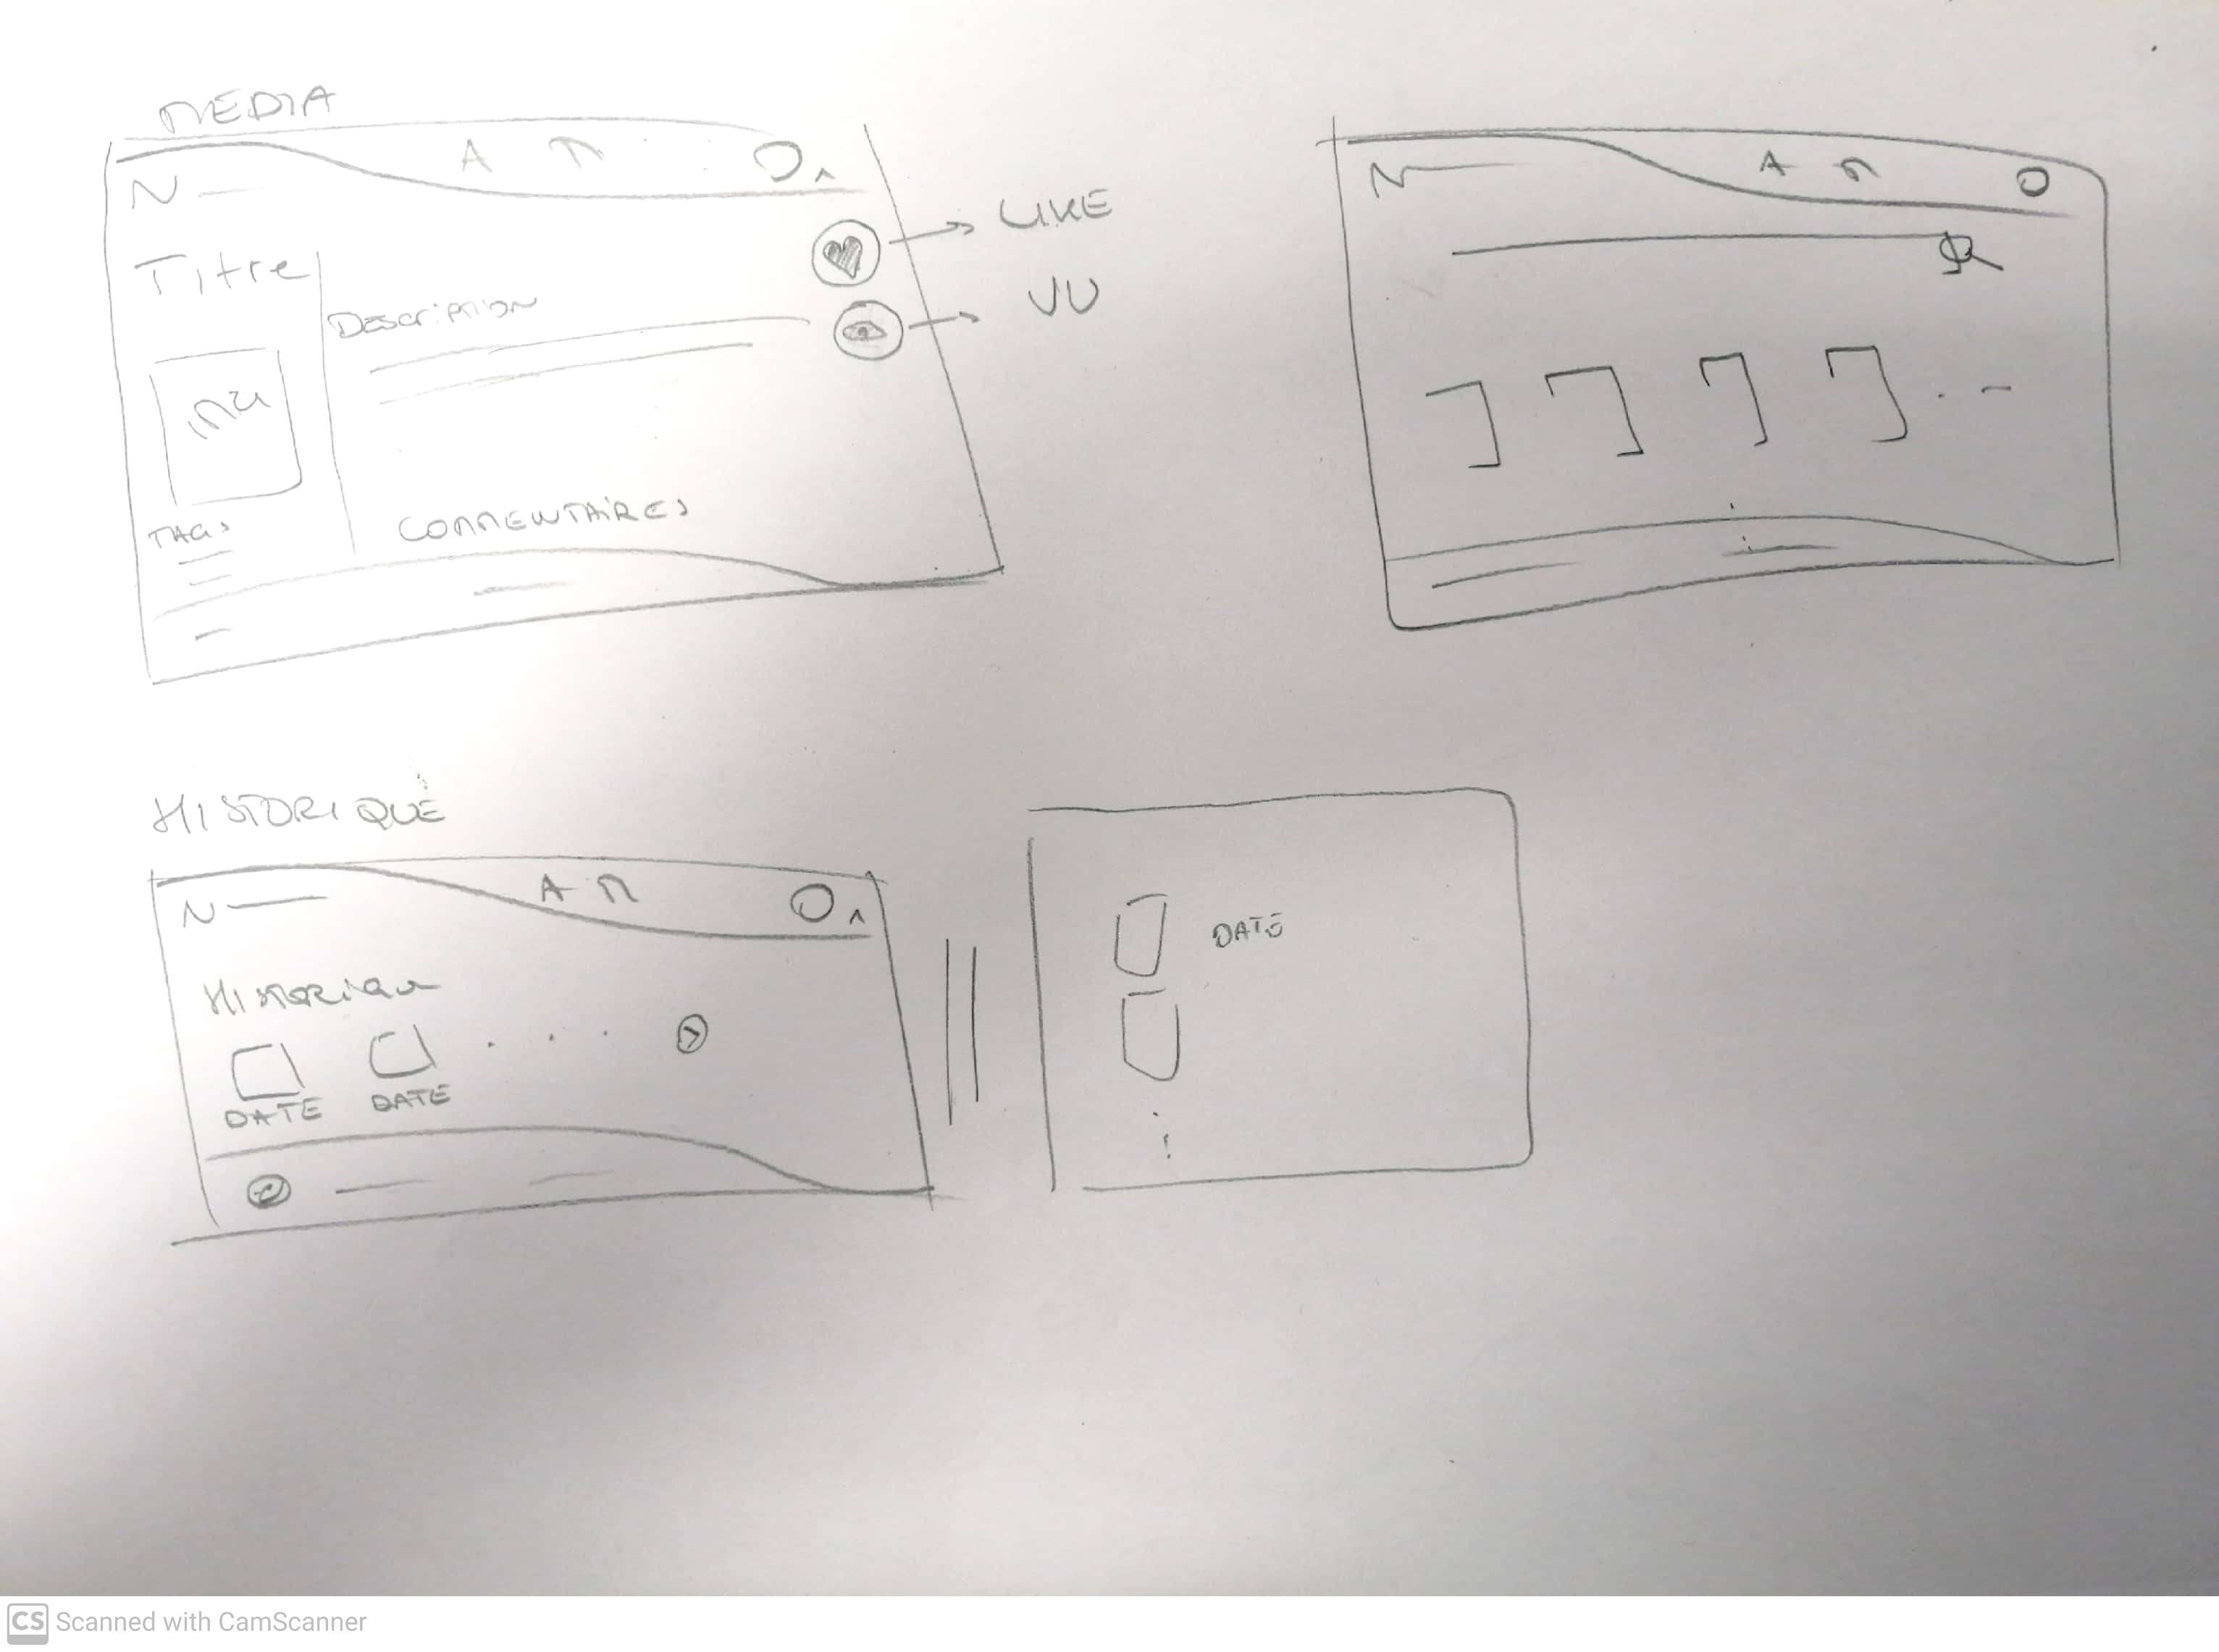 MEDIA
A M
N
LIKE
Titre
VU
Description
TAGS
COMMENTAIRES
N
A M
HISTORIQUE
A M
N
Historique
DATE DATE
DATE
CS Scanned with CamScanner